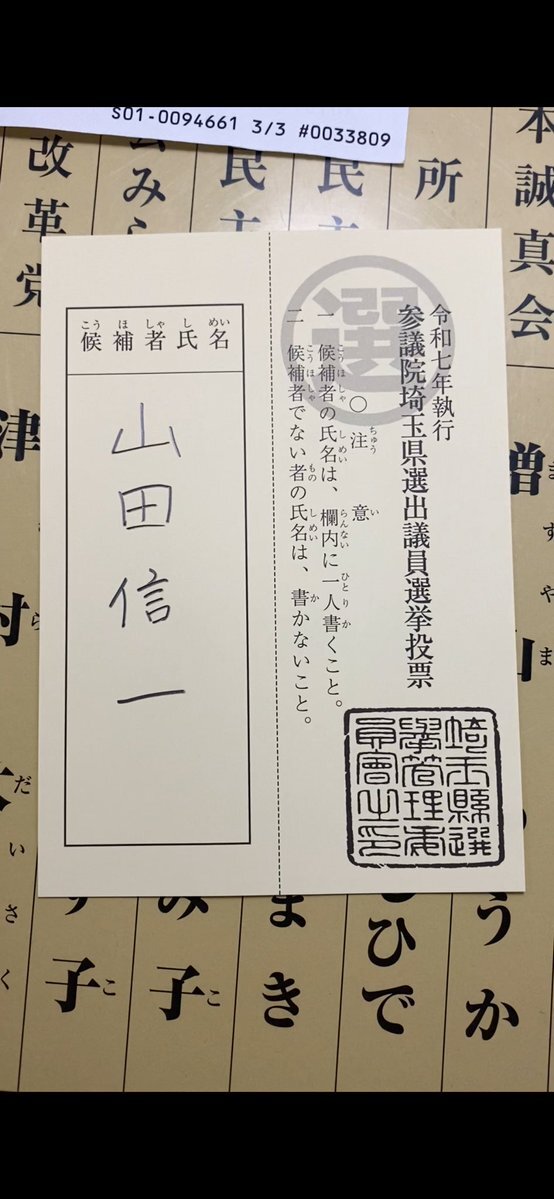 S01-0094661 3/3 #0033809
本誠真会
所
民主
民主
会みら
改革党
令和七年執行
参議院埼玉県選出議員選挙投票
○注意
一 候補者の氏名は、欄内に一人書くこと。
二 候補者でない者の氏名は、書かないこと。
選
埼玉縣選
擧管理委
員會之印
候補者氏名
山田信一
うか
ひで
まき
み子
子
津
村
増
山